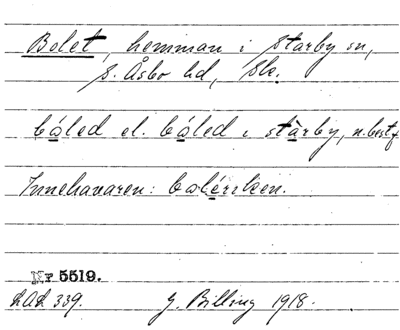 Bolet, hemman i Starby sn,
S. Åsbo hd, Sk.
bóled el. bóled i stàrby, n. best f
Innehavaren: bolériken.
Nr 5519.
LAL 339. G. Billing 1918.